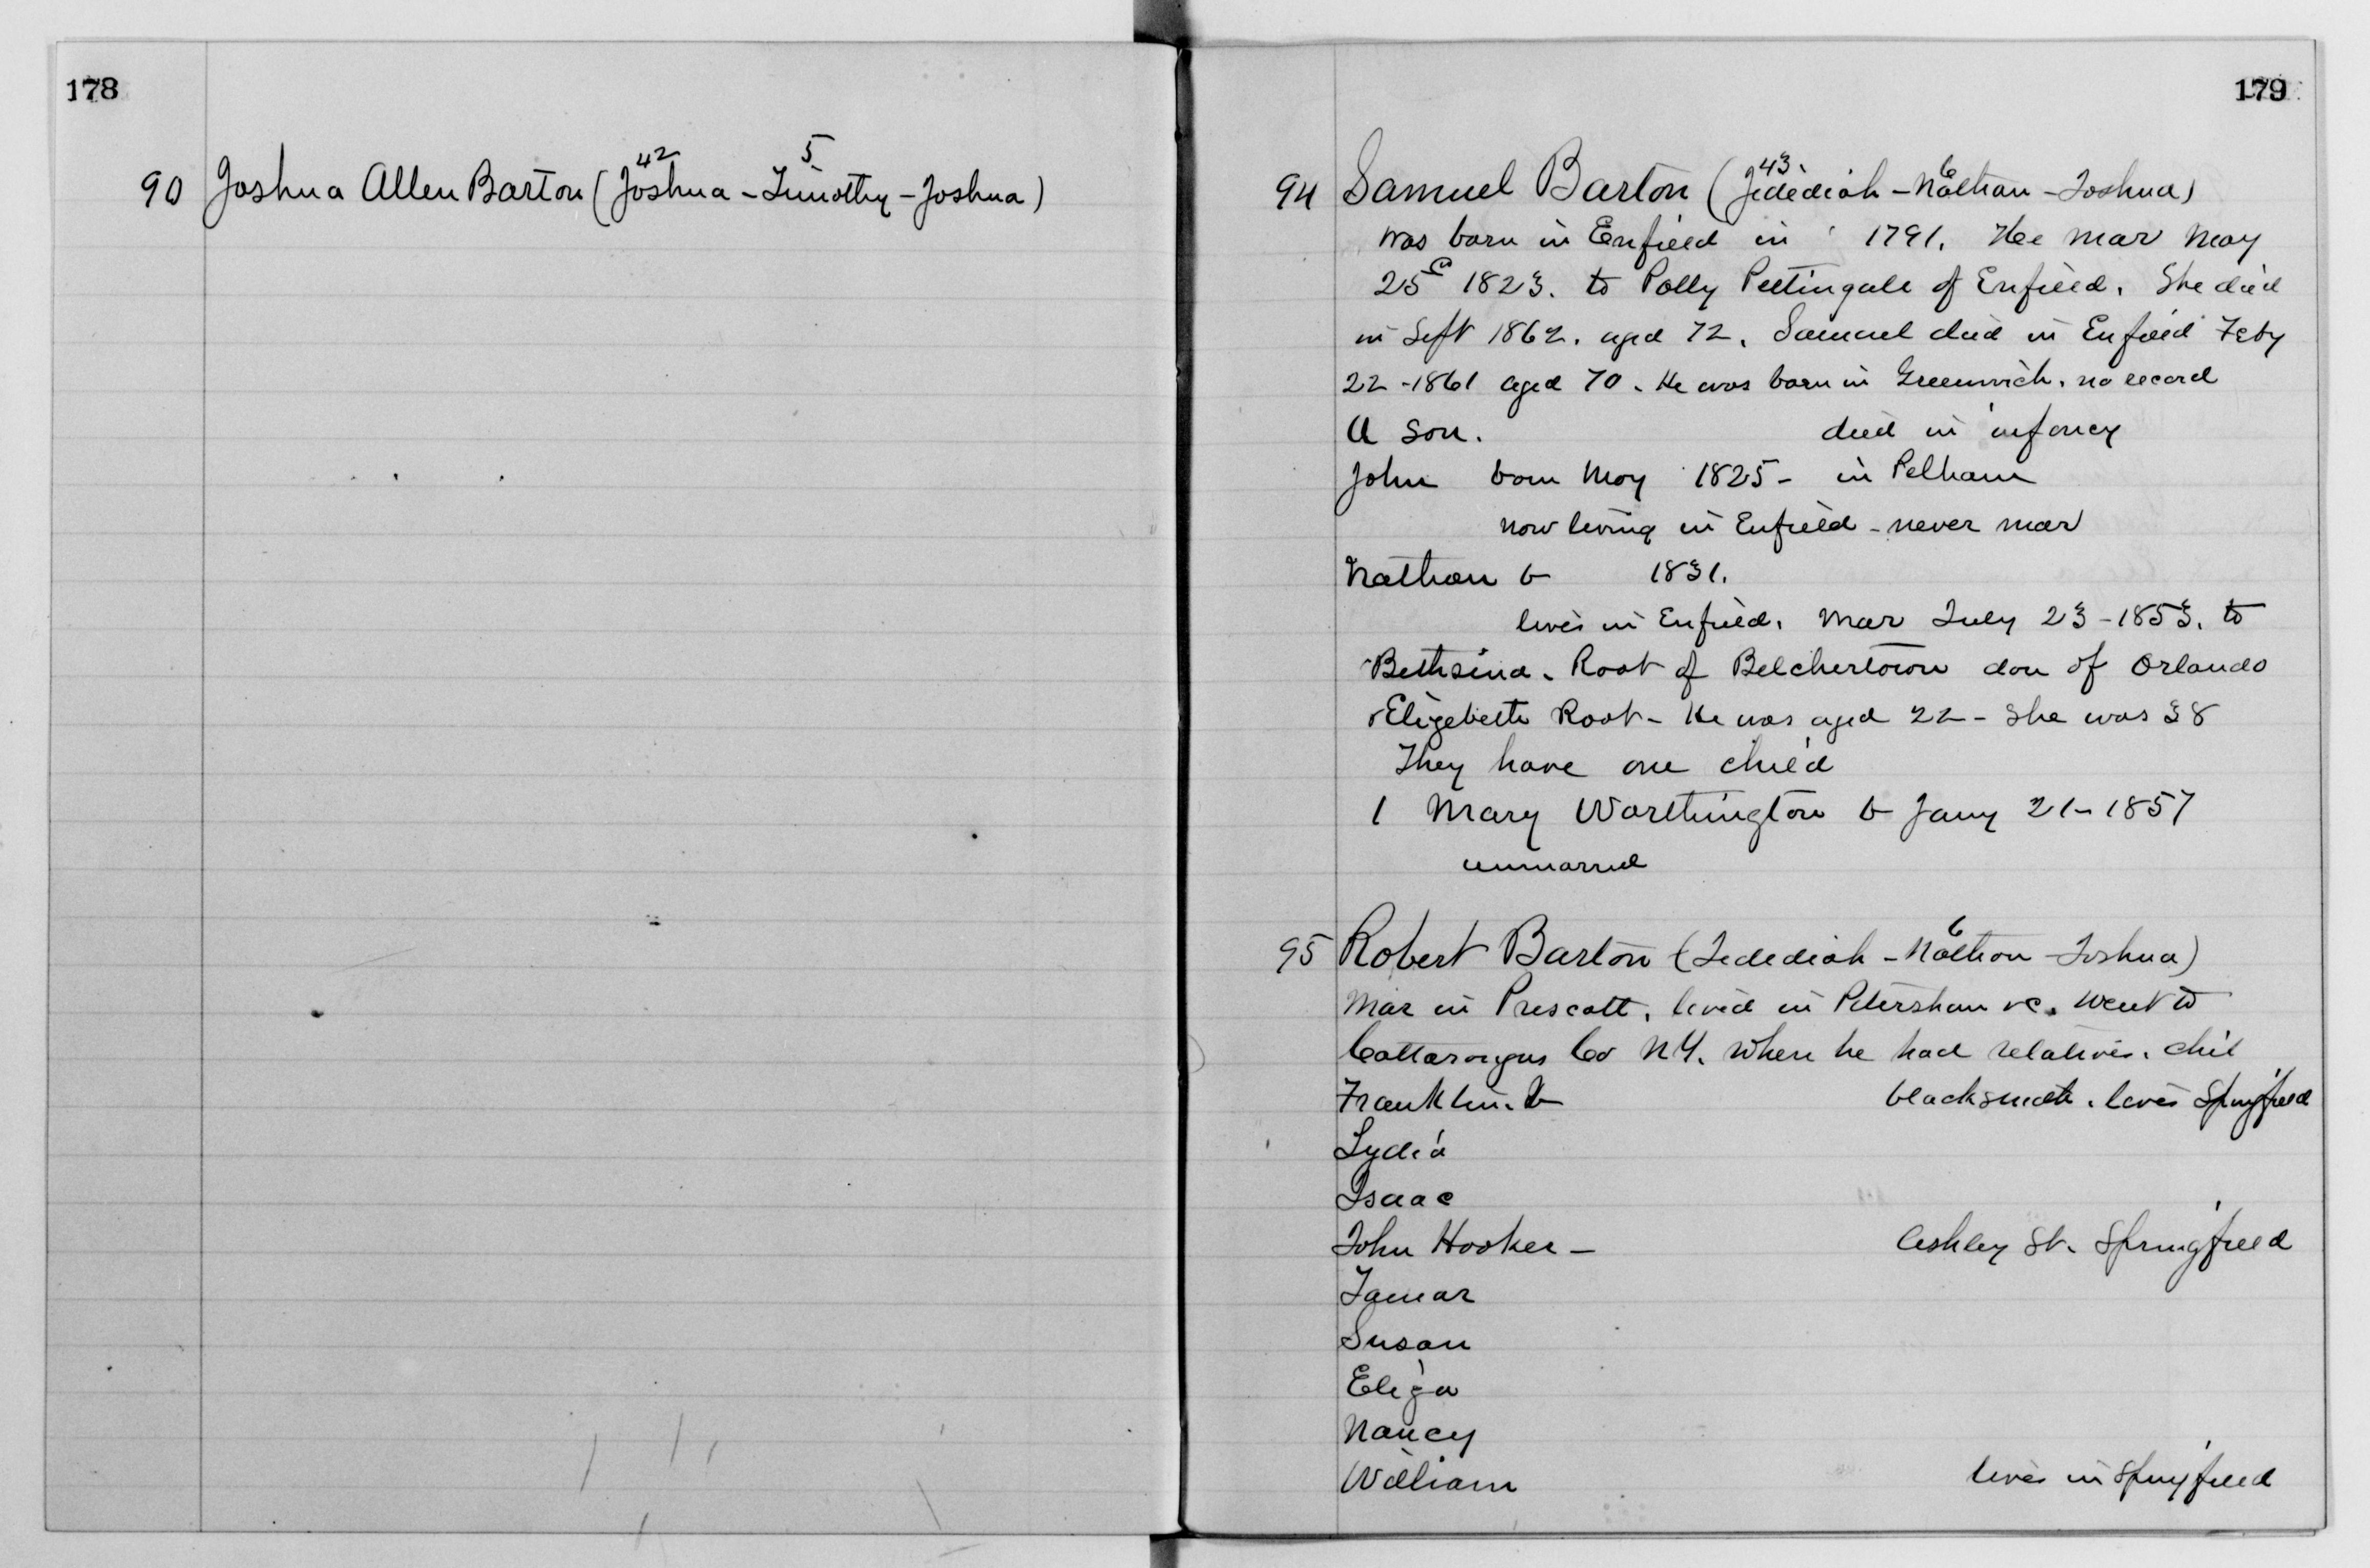 178
42 5
90 Joshua Allen Barton (Joshua - Timothy - Joshua)
179
43 6
94 Samuel Barton (Jedediah - Nathan - Joshua)
was born in Enfield in 1791. He mar May
25 1823. to Polly Pettingale of Enfield. She died
in Sept 1862. aged 72. Samuel died in Enfield Feby
22 - 1861 aged 70. He was born in Greenwich. no record
A son. died in infancy
John born May 1825 - in Pelham
now living in Enfield - never mar
Nathan b 1831.
lives in Enfield. Mar July 23 - 1853. to
Bethsina. Root of Belchertown dau of Orlando
& Elizabeth Root - He was aged 22 - She was 38
They have one child
1 Mary Worthington b Jany 21 - 1857
unmarried
6
95 Robert Barton (Jedediah - Nathan - Joshua)
Mar in Prescott. lived in Petersham &c. went to
Cattaraugus Co N.Y. where he had relatives. chil
Franklin. b blacksmith. lives Springfield
Lydia
Isaac
John Hooker - Ashley St. Springfield
Tamar
Susan
Eliza
Nancy
William lives in Springfield